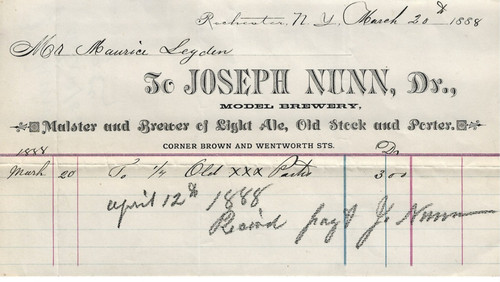 Rochester, N.Y. March 20th 1888
Mr Maurice Leyden
To JOSEPH NUNN, Dr.,
MODEL BREWERY,
Malster and Brewer of Light Ale, Old Stock and Porter.
CORNER BROWN AND WENTWORTH STS.
1888 Dr
March 20 To 1/4 Old XXX Porter 3 00
April 12th 1888
Recived payt J. Nunn